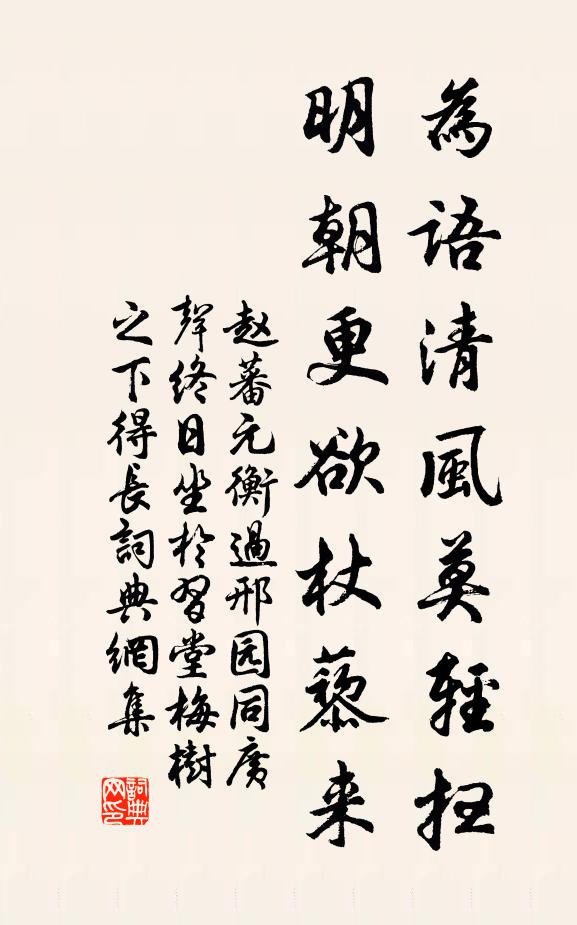 為語清風莫輕扫
明朝更欲杖藜来
赵蕃元衡過邢园同廣
聲終日坐於習堂梅樹
之下得長詞典網集
詞典网印